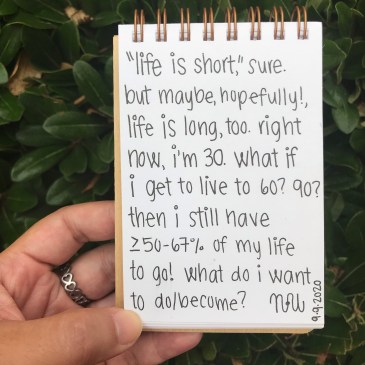 "life is short," sure.
but maybe, hopefully!,
life is long, too. right
now, i'm 30. what if
i get to live to 60? 90?
then i still have
≥50-67% of my life
to go! what do i want
to do/become?
9.9.2020